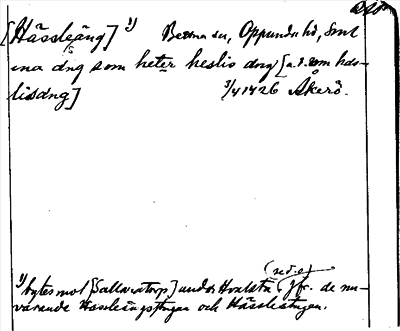 [Hässleäng] 1) Bettna sn, Oppunda hd, Sml
ena dng som heter heslis dng [a.s. som has-
lisdng] 3/4 1426 Åkerö.
(se d.o)
1) bytes mot [Sallavatorp] under Hvalstå (Jfr. de nu-
varande Hässleängstugan och Hässlestugan.